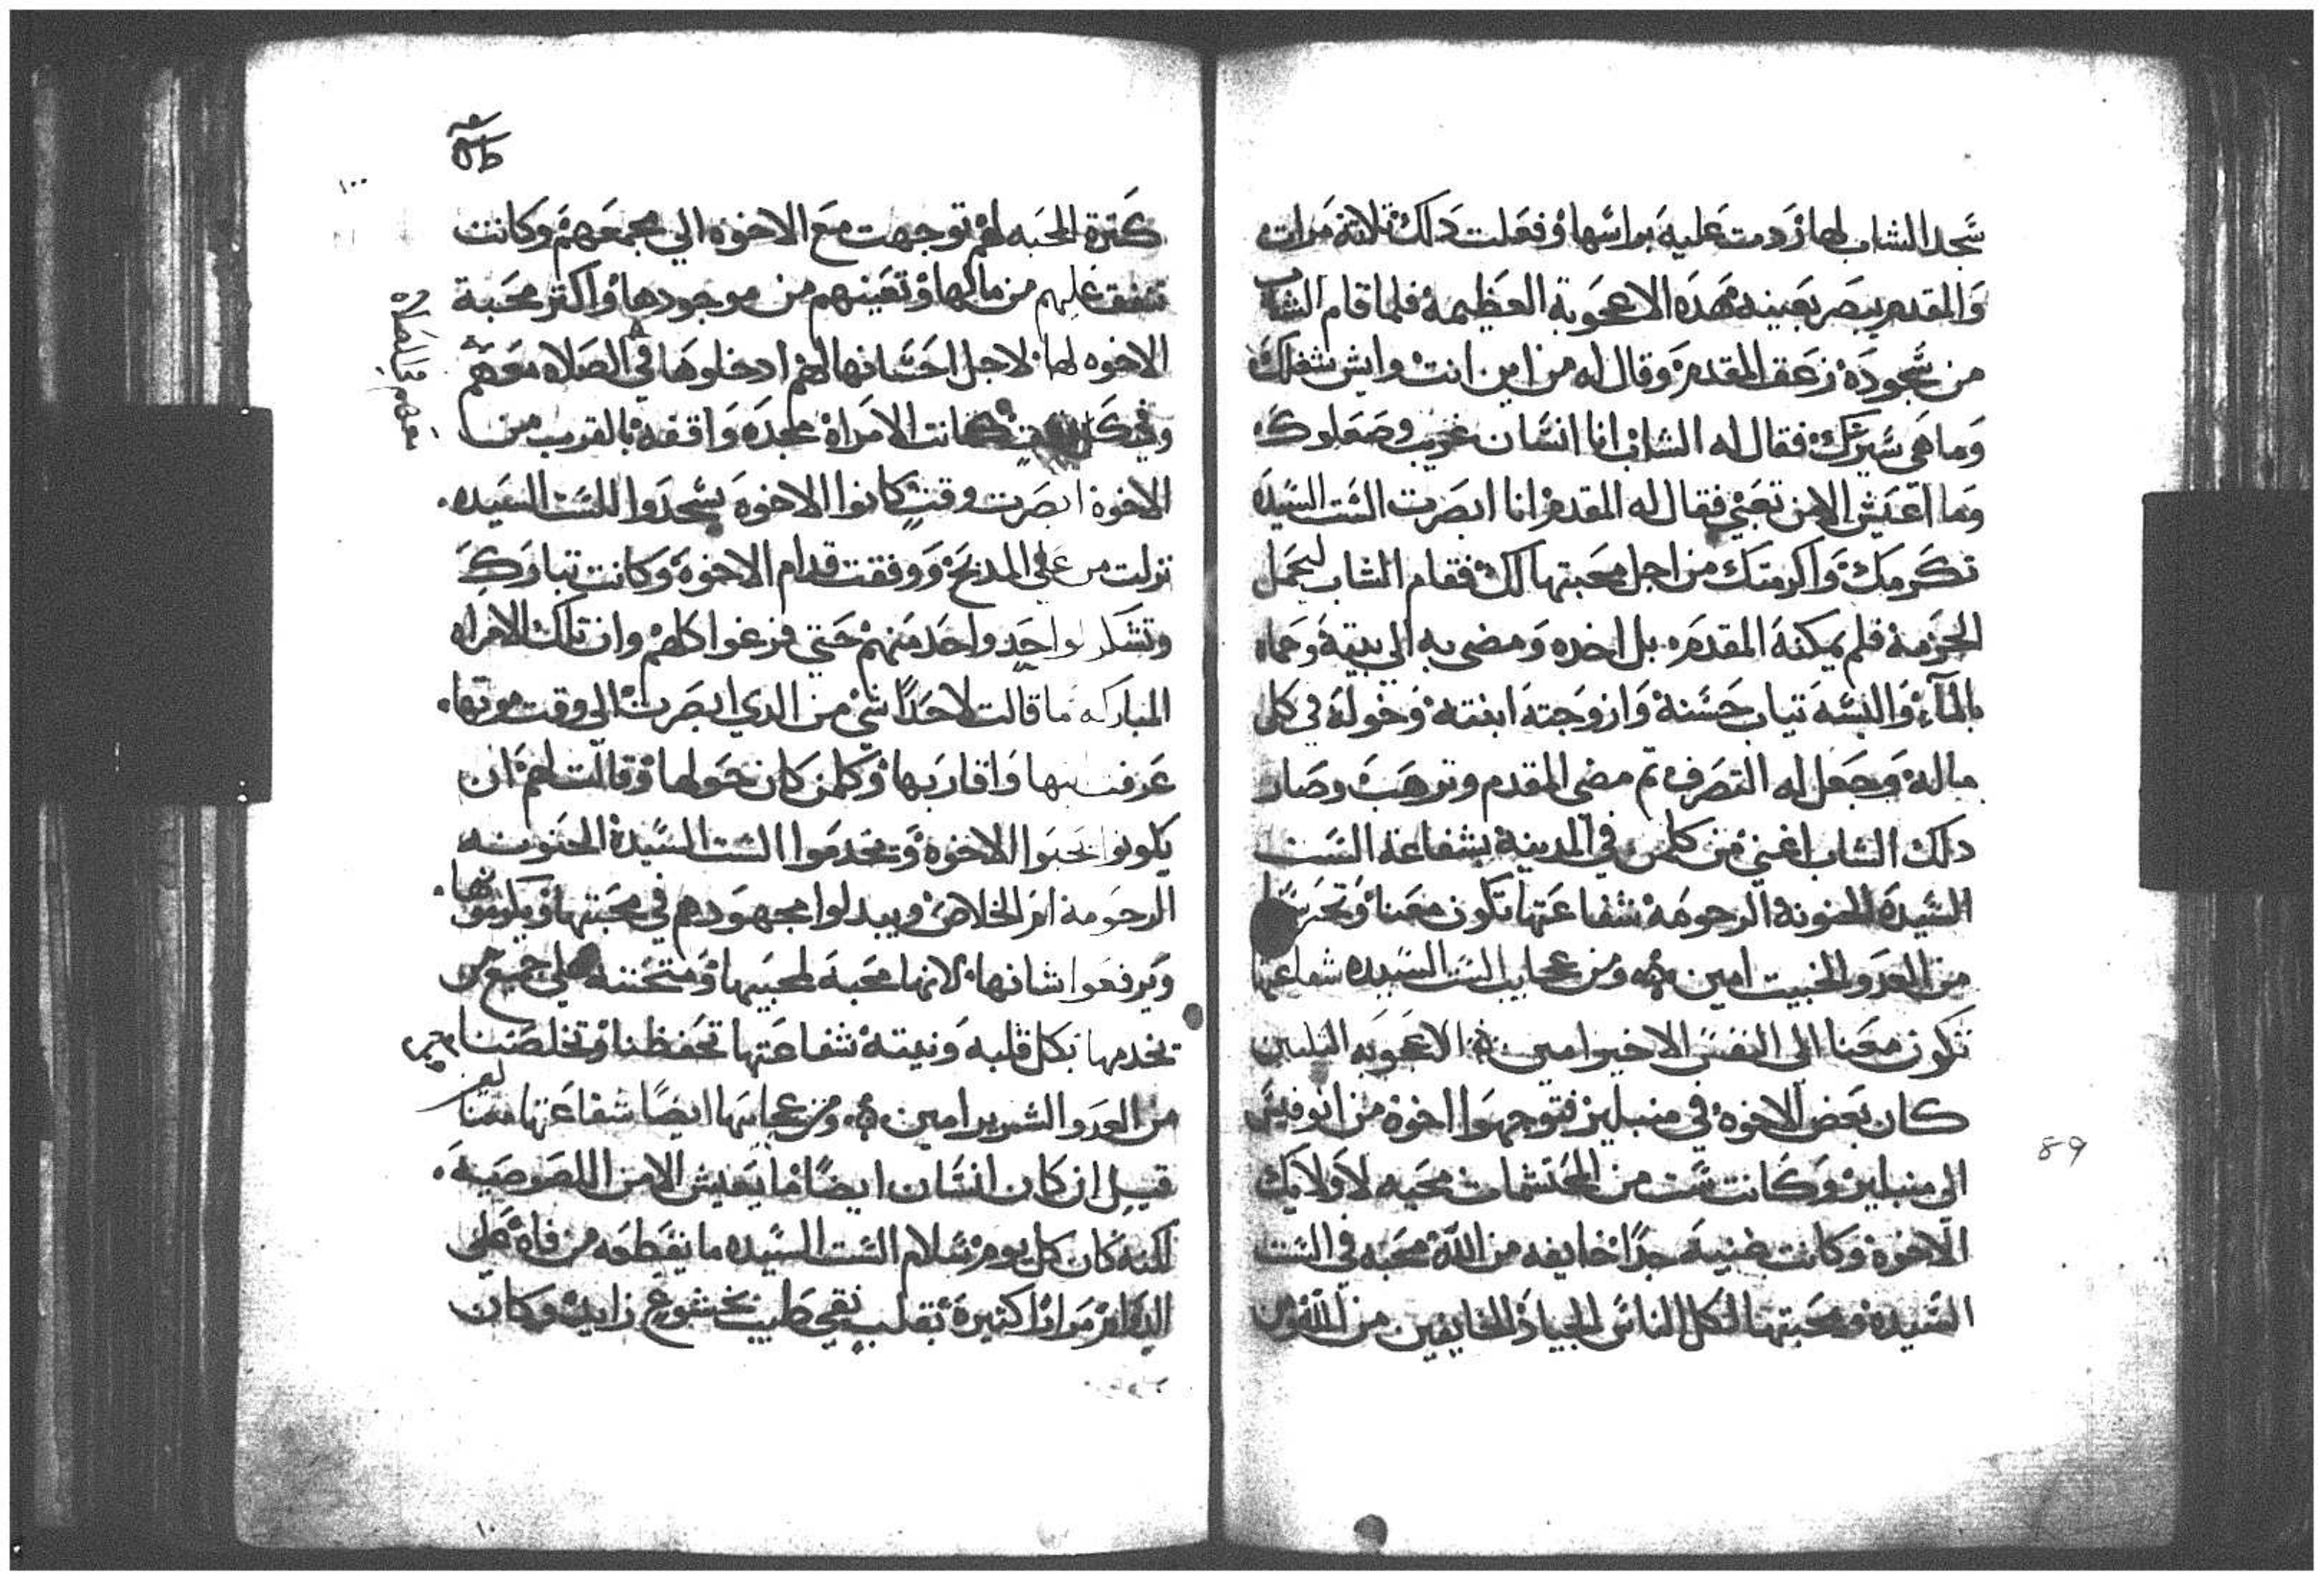 سجد الشاب لها زدمت عليه براسها وفعلت دلك تلاتة مرات
والمقدم يبصر بعينه هده الاعجوبة العظيمة فلما قام الشاب
من سجوده زعق المقدم وقال له من اين انت وايش شغلك
وما هي سيرتك فقال له الشاب انا انسان غريب وصعلوك
وما اعيش الا من تعبي فقال له المقدم انا ابصرت الست السيده
تكرمك واكرمتك من اجل محبتها لك فقام الشاب ليحمل
الحزمة فلم يمكنه المقدم بل اخده ومضى به الي بيته وحماه
بالماء والبسه تياب حسنة وازوجته ابنته وخوله في كل
ماله وجعل له التصرف تم مضى المقدم وترهب وصار
دلك الشاب اغني من كلمن في المدينة بشفاعة الست
السيدة الحنونة الرحومة شفاعتها تكون معنا وتحرسنا
من العدو الخبيت امين ومن عجايب الست السيده شفاعتها
تكون معنا الى النفس الاخير امين الاعجوبه التلتين
كان بعض الاخوة في منبلين فتوجهوا اخوة من انوفيس
الي منبلين وكانت ست من المحتشمات محبه لاولايك
الاخوة وكانت غنية جدا خايفه من الله محبه في الست
السيدة ومحبتها لكل الناس الجياد الخايفين من الله ومن
كترة المحبه لهم توجهت مع الاخوه الي مجمعهم وكانت
تنفق عليهم من مالها وتعينهم من موجودها واكتر محبة
الاخوه لها لاجل احسانها لهم ادخلوها في الصلاه معهم
وفي كل كانت الامراة مجده واقفه بالقرب من
الاخوة ابصرت وقت كانوا الاخوة يسجدوا للست السيده
نزلت من على المدبح ووقفت قدام الاخوة وكانت تبارك
وتشكر لواحد واحد منهم حتي فرغوا كلهم وان تلك الامراه
المباركه ما قالت لاحدا شي من الدي ابصرت الى وقت موتها
عرفت واقاربها وكلمن كان حولها وقالت لهم ان
يكونوا يحبوا الاخوة وتخدموا الست السيدة الحنونه
الرحومة ام الخلاص ويبدلوا مجهودهم في محبتها ويكرموها
ويرفعوا شانها لانها محبة لمحبيها ومتحننة علي جميع من
تخدمها بكل قلبه ونيته شفاعتها تحفظنا وتخلصنا
من العدو الشرير امين ومن عجايبها ايضا شفاعتها معنا
قيل ان كان انسان ايضا ما يعيش الا من اللصوصية
لكنه كان كل يوم سلام الست السيده ما يقطعه من فاه علي
الدوام مرارا كتيرة بقلب نقي طيب بخشوع زايد وكان
89
١٠٠